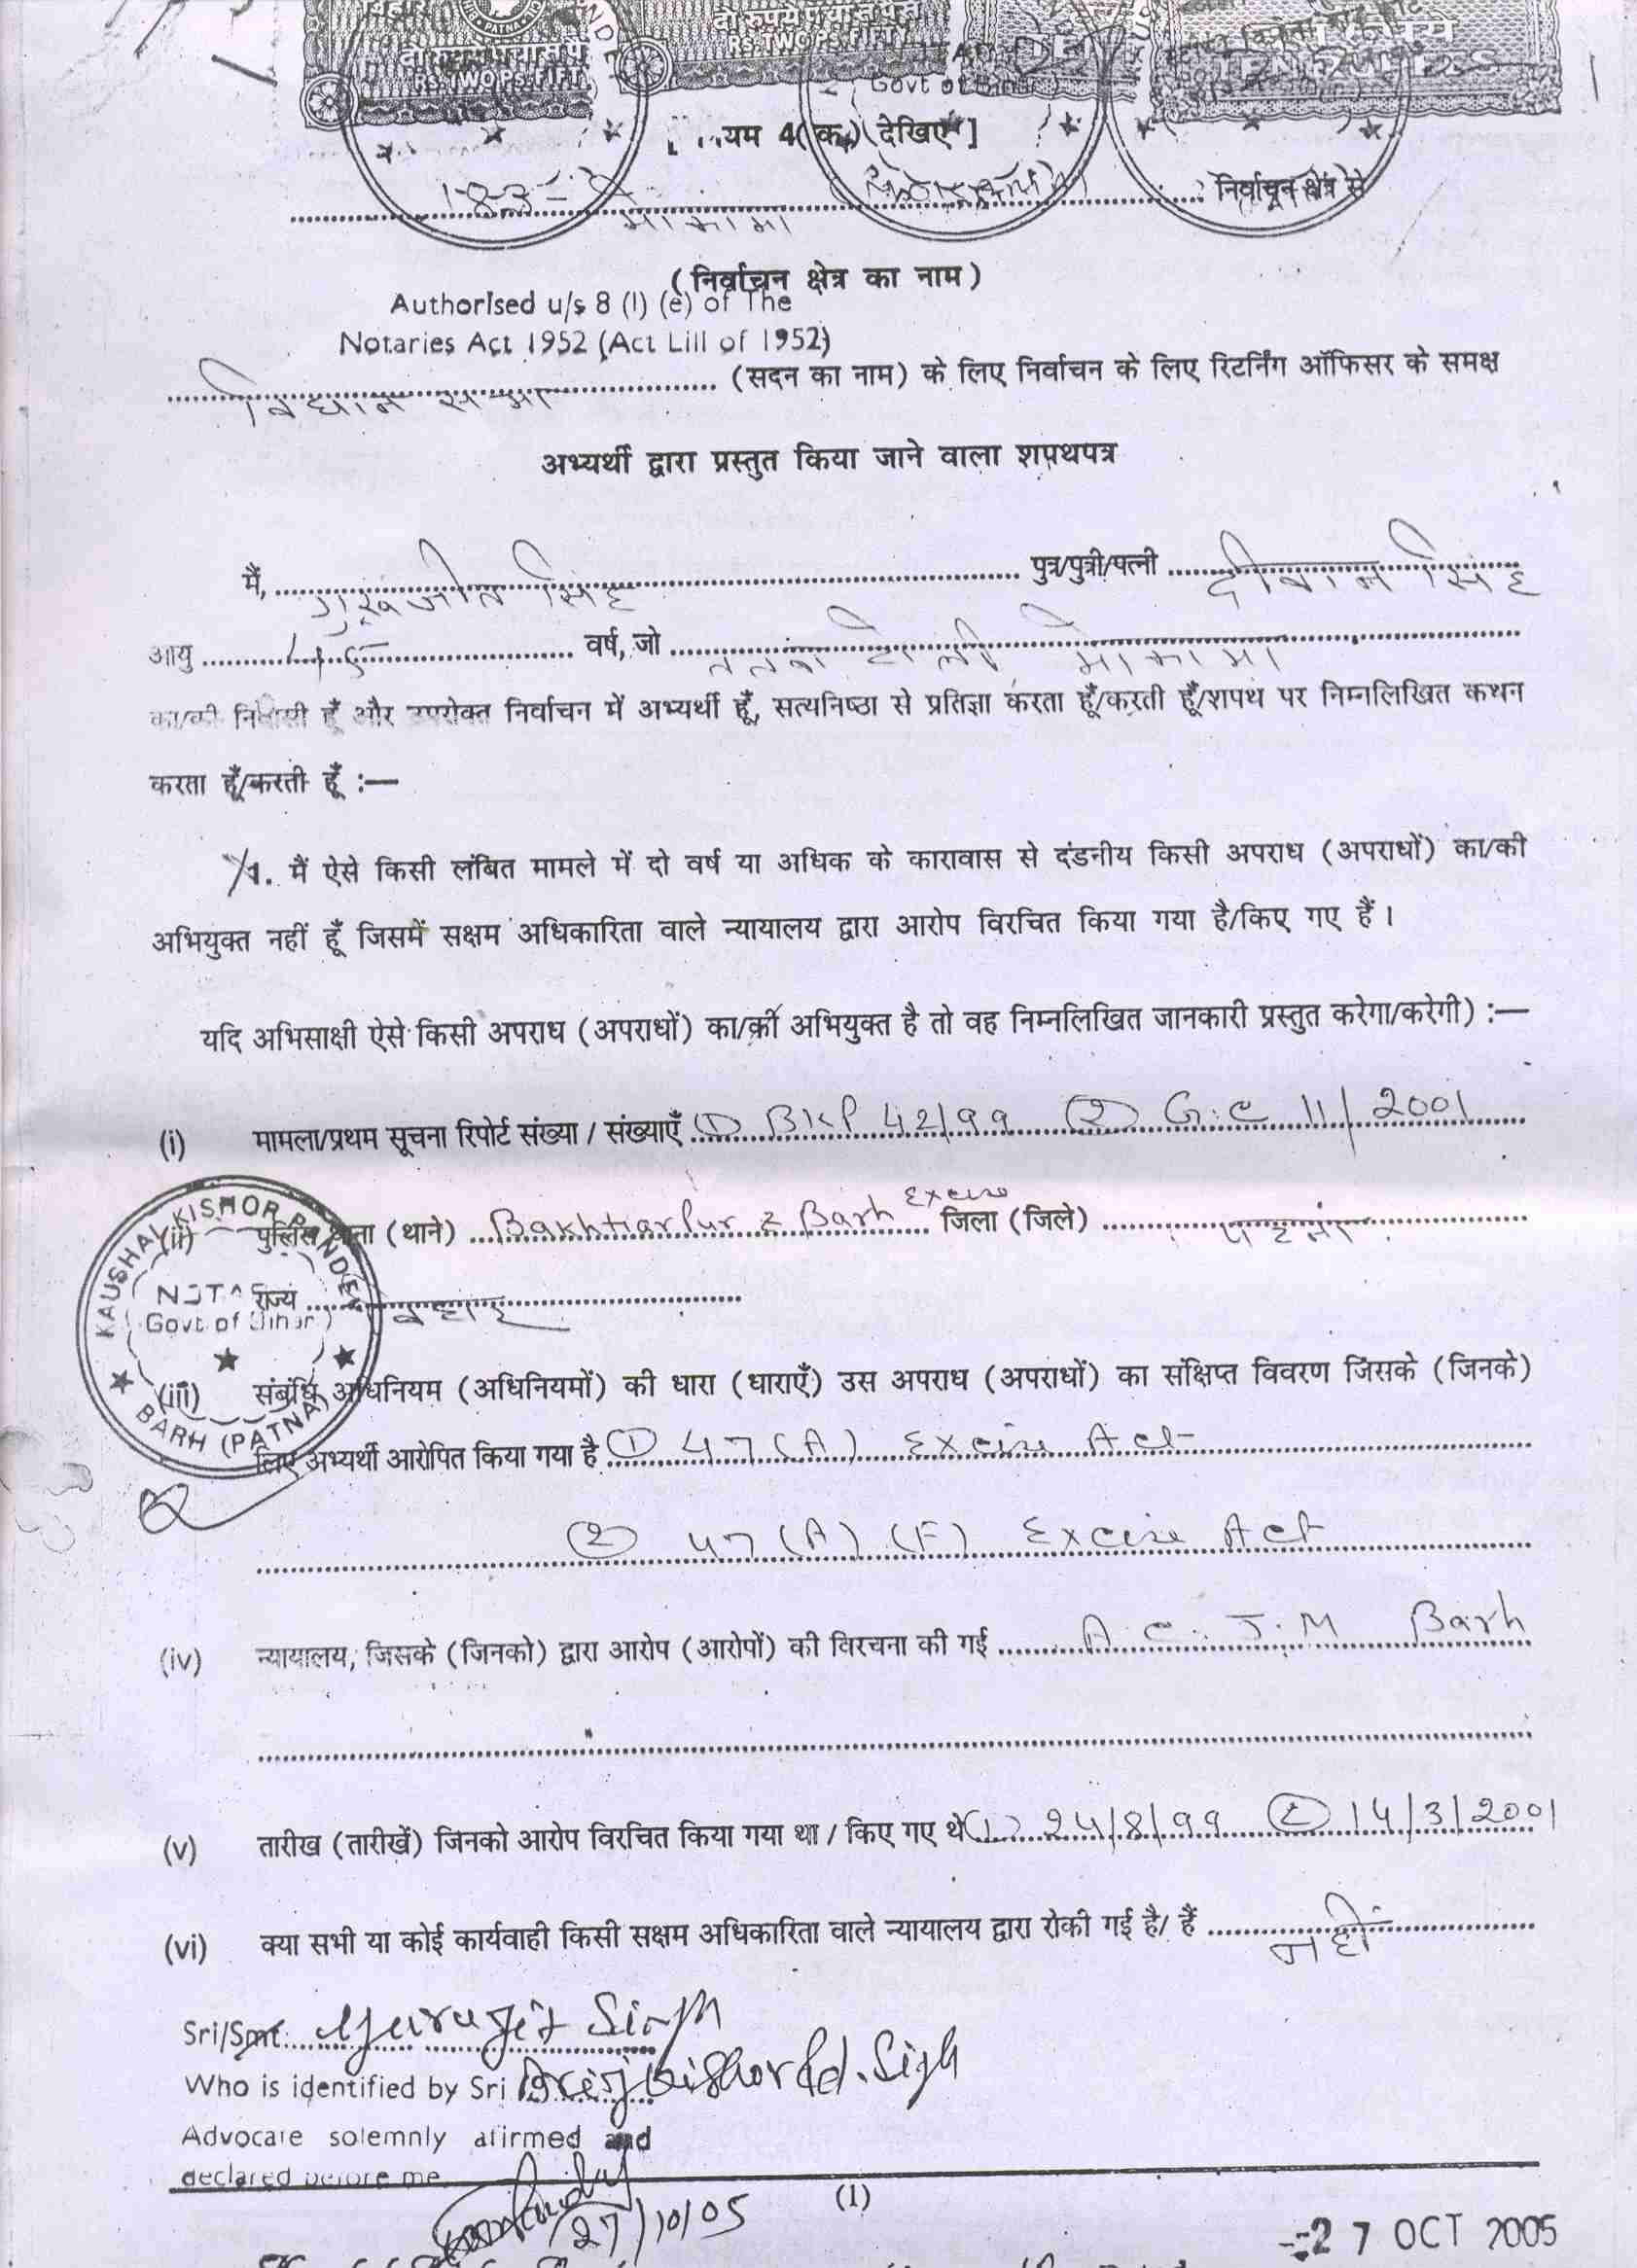 दो रुपये पचास पैसे
RS.TWO PS.FIFTY
RS.TWO PS.FIFTY
TEN RUPEES
Govt of Bihar
यम 4(क) देखिए ]
183- मोकामा निर्वाचन क्षेत्र से
(निर्वाचन क्षेत्र का नाम)
Authorised u/s 8 (I) (e) of The
Notaries Act 1952 (Act Lill of 1952)
विधान सभा (सदन का नाम) के लिए निर्वाचन के लिए रिटर्निंग ऑफिसर के समक्ष
अभ्यर्थी द्वारा प्रस्तुत किया जाने वाला शपथपत्र
मैं, गुरूजीत सिंह पुत्र/पुत्री/पत्नी दीवान सिंह
आयु 45 वर्ष, जो टोली मोकामा
का/की निवासी हूँ और उपरोक्त निर्वाचन में अभ्यर्थी हूँ, सत्यनिष्ठा से प्रतिज्ञा करता हूँ/करती हूँ/शपथ पर निम्नलिखित कथन
करता हूँ/करती हूँ :—
1. मैं ऐसे किसी लंबित मामले में दो वर्ष या अधिक के कारावास से दंडनीय किसी अपराध (अपराधों) का/की
अभियुक्त नहीं हूँ जिसमें सक्षम अधिकारिता वाले न्यायालय द्वारा आरोप विरचित किया गया है/किए गए हैं ।
यदि अभिसाक्षी ऐसे किसी अपराध (अपराधों) का/की अभियुक्त है तो वह निम्नलिखित जानकारी प्रस्तुत करेगा/करेगी) :—
(i) मामला/प्रथम सूचना रिपोर्ट संख्या / संख्याएँ (1) BKP 42/99 (2) G.C 11/2001
(ii) पुलिस थाना (थाने) Bakhtiarpur & Barh Excise जिला (जिले) पटना
राज्य बिहार
KAUSHAL KISHOR PANDEY
NOTARY
Govt. of Bihar
BARH (PATNA)
(iii) संबंधि अधिनियम (अधिनियमों) की धारा (धाराएँ) उस अपराध (अपराधों) का संक्षिप्त विवरण जिसके (जिनके)
लिए अभ्यर्थी आरोपित किया गया है (1) 47 (A) Excise Act
(2) 47 (A) (F) Excise Act
(iv) न्यायालय, जिसके (जिनको) द्वारा आरोप (आरोपों) की विरचना की गई A.C.J.M Barh
(v) तारीख (तारीखें) जिनको आरोप विरचित किया गया था / किए गए थे (1) 24/8/99 (2) 14/3/2001
(vi) क्या सभी या कोई कार्यवाही किसी सक्षम अधिकारिता वाले न्यायालय द्वारा रोकी गई है/ हैं नहीं
Sri/Smt. Gurujit Singh
Who is identified by Sri Brij Kishor Pd. Sigh
Advocate solemnly afirmed and
declared before me
27/10/05
(1)
27 OCT 2005